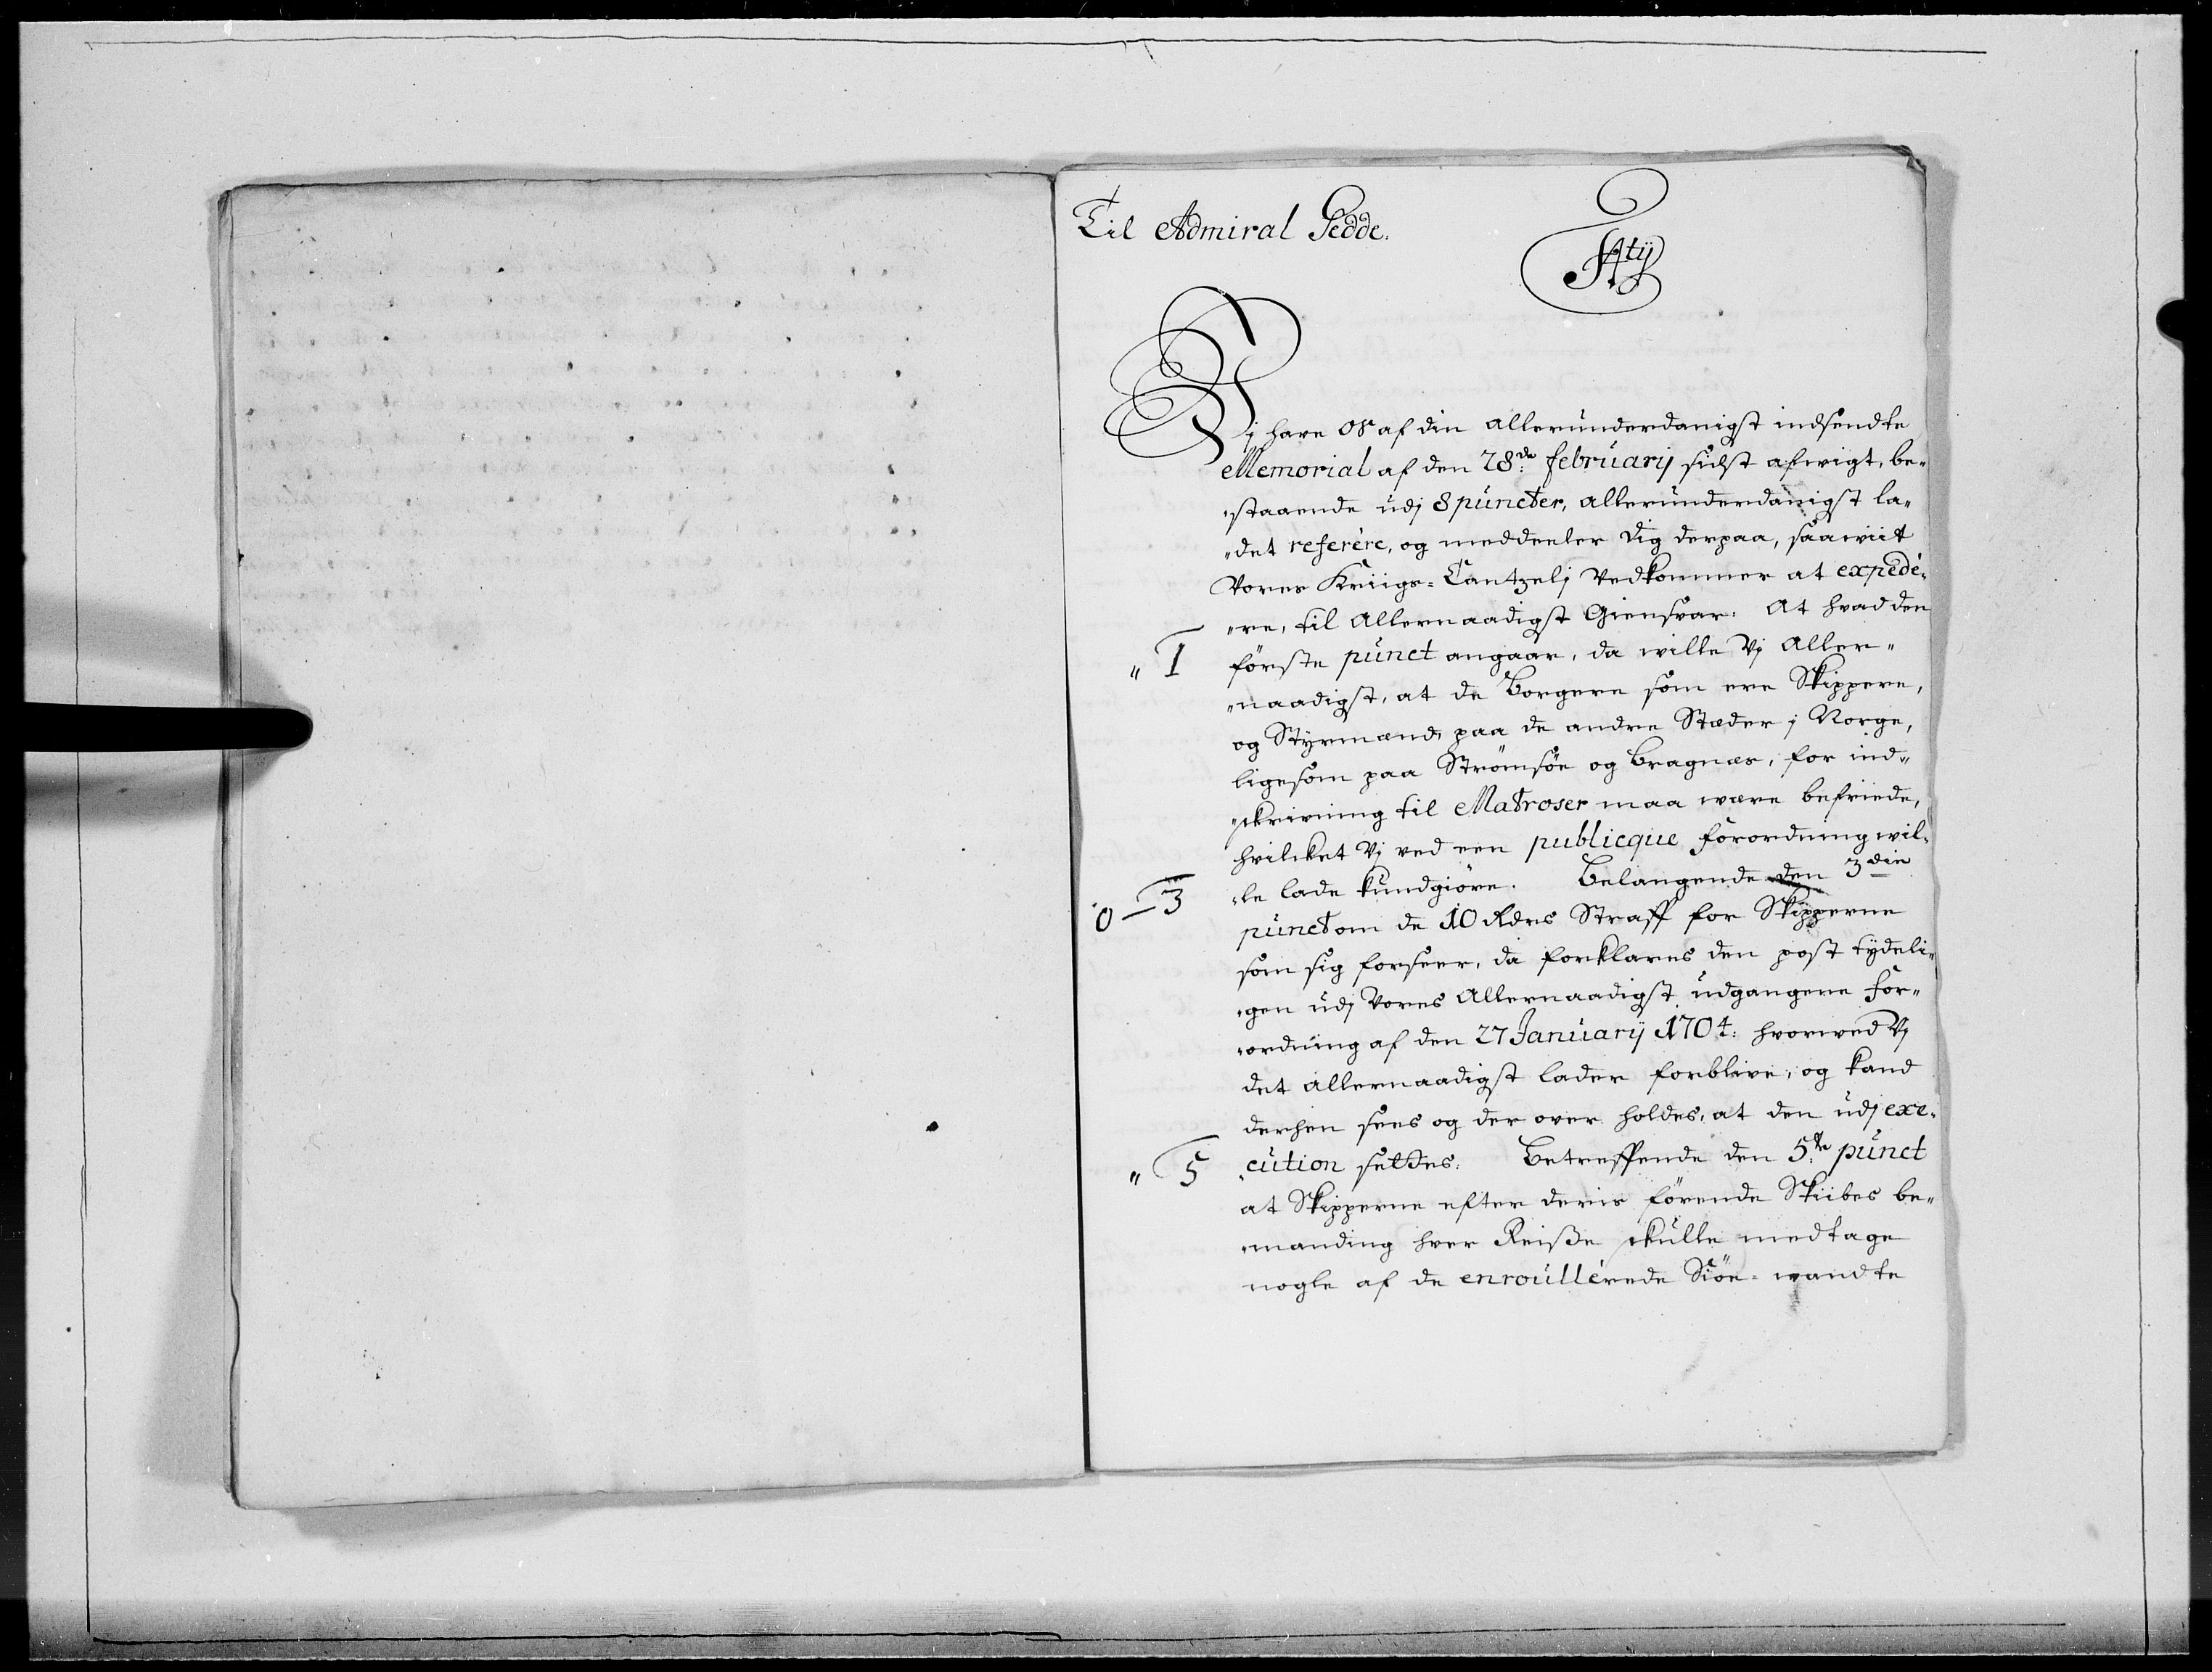 Til Admiral Gedde.
F4tij
Vj have os af din allerunderdanigst indsendte
Memorial af den 28de february sidst afwigt, be„
„staaende udj 8 puncter, allerunderdanigst la„
„det referére, og meddeeler dig derpaa, saawiit
Vores Kriigs-Cantzelj Vedkommer at expedé„
„re, til Allernaadigst Giensvar: At hvad den
„ 1 første punct angaar, da wille Vj Aller„
„naadigst, at de Borgere som ere Skippere,
og Styrmænd, paa de andre Stæder j Norge,
ligesom paa Strømsöe og Bragnæs, for ind„
„skrivning til Matroser maa være befriede,
hvilcket Vj ved een publicque forordning wil„
0—3 „le lade kundgiöre. Belangende den 3die
punct om de 10 Rdrs Straff for Skipperne
som sig forseer, da forklares den post tydeli„
„gen udj Vores Allernaadigst udgangene For„
„ordning af den 27 January 1704: hvorved Vj
det allernaadigst lader forblive, og kand
derhen sees og der over holdes, at den udj exe„
„ 5 „cution settes. Betreffende den 5te punct
at Skipperne efter deris förende Skiibes be„
„manding hver Reiße skulle medtage
nogle af de enroullérede Siöe-wandte